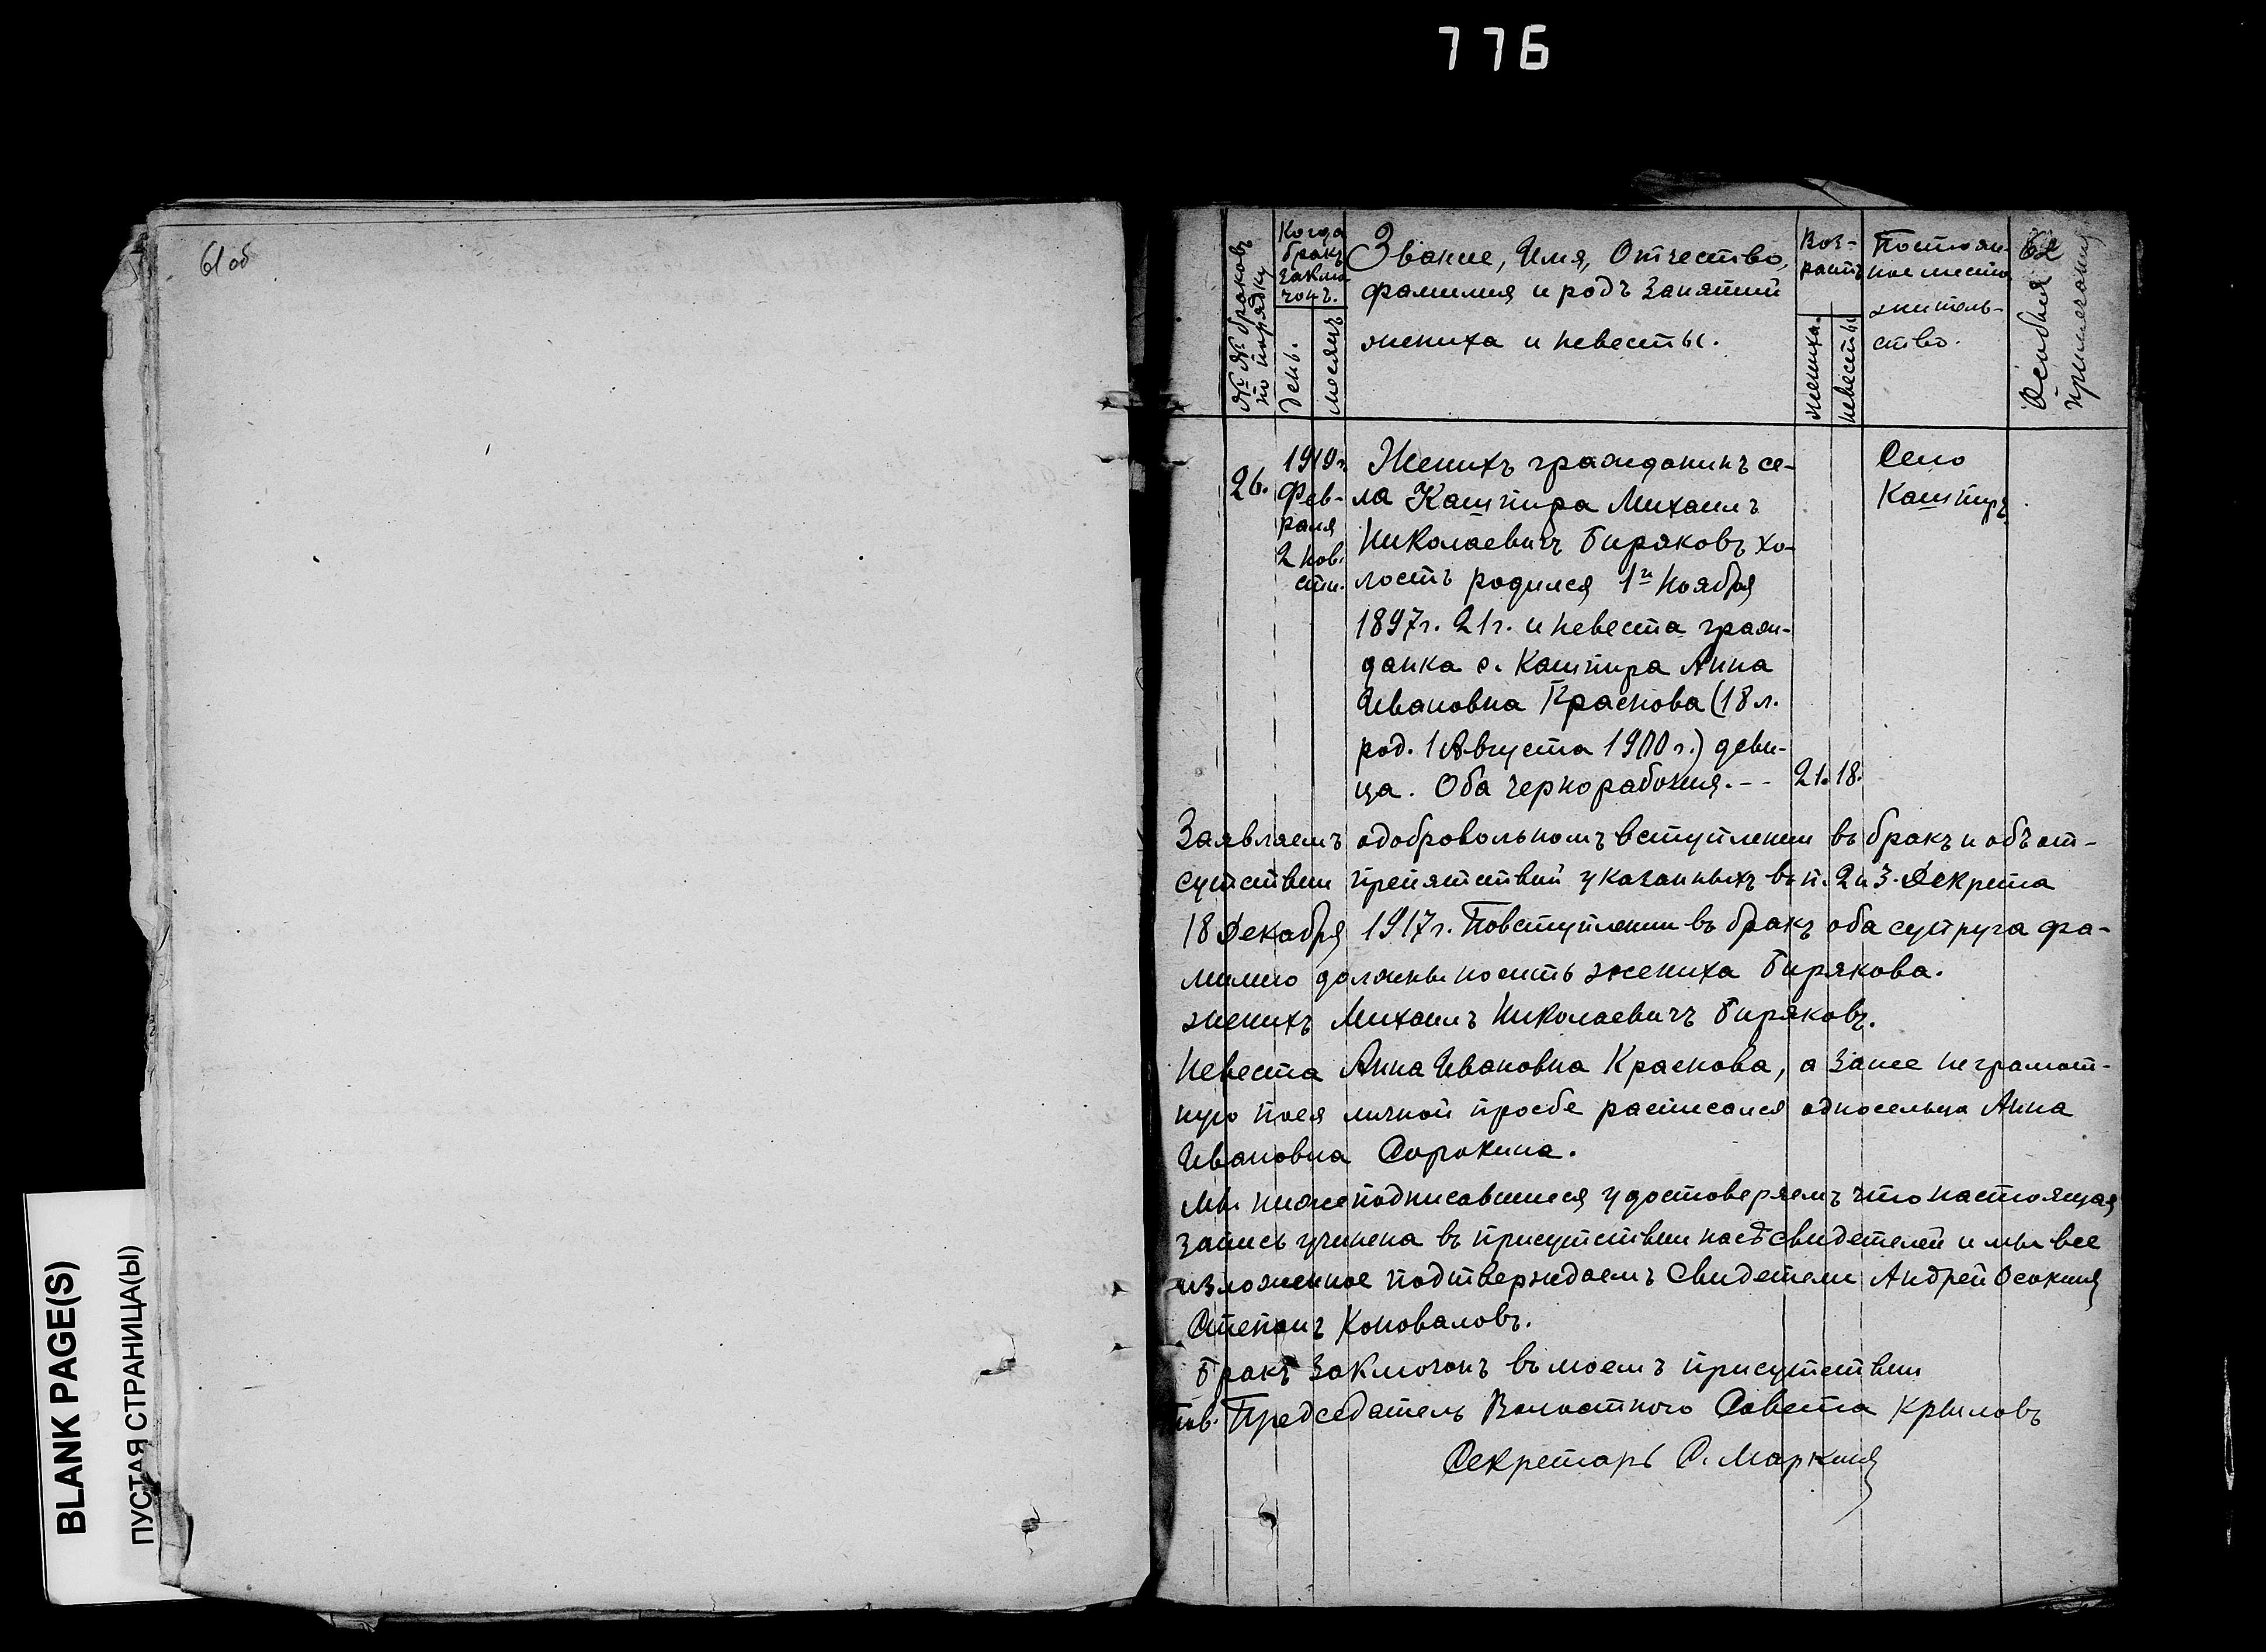 776
61об
BLANK PAGE(S)
ПУСТАЯ СТРАНИЦА(Ы)
62
№№ браковъ по порядку
Когда бракъ заключонъ.
день.
месяцъ
Званіе, Имя, Отчество,
фамилія и родъ занятій
жениха и невесты.
Воз-
растъ
жениха.
невесты
Постоян-
ное место
житель-
ство.
Особыя примечания
26.
1919г.
Фев-
раля
2 нов.
сти.
Женихъ гражданинъ се-
ла Кашпира Михаилъ
Николаевичъ Биряковъ хо-
лостъ родился 1го Ноября
1897г. 21г. и невеста граж-
данка с. Кашпира Анна
Ивановна Краснова (18 л.
род. 1 Августа 1900 г.) деви-
ца. Оба чернорабочия. --
21. 18.
Село
Кашпиръ
Заявляемъ одобровольномъ вступлении въ бракъ и объ от-
сутствии препятствий указанныхъ въ п. 2 и 3. Декрета
18 Декабря 1917г. Повступлении въ бракъ оба супруга фа-
милию должны носить жениха Бирякова.
женихъ Михаилъ Николаевичъ Биряковъ.
Невеста Анна Ивановна Краснова, а занее неграмот-
ную поея личной просбе расписался односельца Анна
Ивановна Сорокина.
мы нижеподписавшиеся удостоверяемъ что настоящая
запись учинена въ присутствии насъ свидетелей и мы все
изложенное подтверждаемъ Свидетели Андрей Осокинъ
Степанъ Коноваловъ.
Бракъ Заключонъ въ моемъ присутствии
тов. Председатель Волостного Совета Крыловъ
Секретарь С. Маркинъ